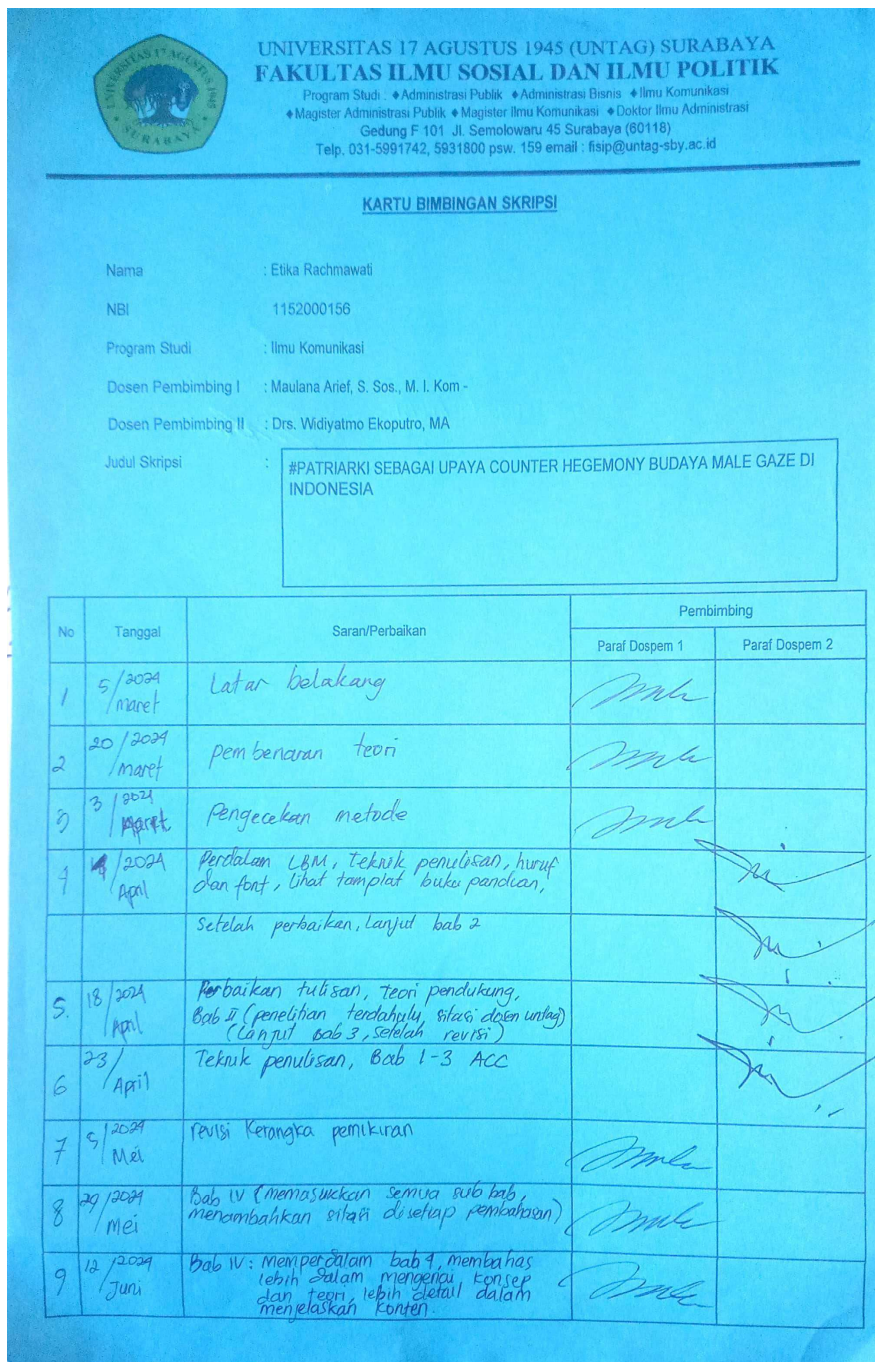 UNIVERSITAS 17 AGUSTUS 1945
SURABAYA
UNIVERSITAS 17 AGUSTUS 1945 (UNTAG) SURABAYA
FAKULTAS ILMU SOSIAL DAN ILMU POLITIK
Program Studi : ◆Administrasi Publik ◆Administrasi Bisnis ◆Ilmu Komunikasi
◆Magister Administrasi Publik ◆Magister Ilmu Komunikasi ◆Doktor Ilmu Administrasi
Gedung F 101 Jl. Semolowaru 45 Surabaya (60118)
Telp. 031-5991742, 5931800 psw. 159 email : fisip@untag-sby.ac.id
KARTU BIMBINGAN SKRIPSI
Nama : Etika Rachmawati
NBI 1152000156
Program Studi : Ilmu Komunikasi
Dosen Pembimbing I : Maulana Arief, S. Sos., M. I. Kom -
Dosen Pembimbing II : Drs. Widiyatmo Ekoputro, MA
Judul Skripsi : #PATRIARKI SEBAGAI UPAYA COUNTER HEGEMONY BUDAYA MALE GAZE DI
INDONESIA
No Tanggal Saran/Perbaikan Pembimbing
Paraf Dospem 1 Paraf Dospem 2
1 5/2024 maret Latar belakang
2 20/2024 maret pembenaran teori
3 3/2024 Pengecekan metode
4 /2024 April Perdalam LBM, Teknik penulisan, huruf
dan font, lihat tamplat buku panduan,
Setelah perbaikan, Lanjut bab 2
5. 18/2024 April Perbaikan tulisan, teori pendukung,
Bab II (penelitian terdahulu, sitasi dosen untag)
(Lanjut Bab 3, setelah revisi)
6 23/ April Teknik penulisan, Bab 1-3 ACC
7 5/2024 Mei revisi Kerangka pemikiran
8 29/2024 Mei Bab IV (memasukkan semua sub bab,
menambahkan sitasi disetiap pembahasan)
9 12/2024 Juni Bab IV: memperdalam bab 4, membahas
lebih dalam mengenai, konsep
dan teori, lebih detail dalam
menjelaskan konten.